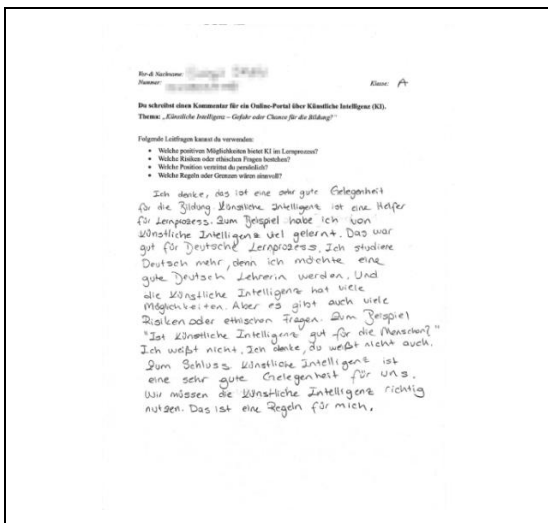 Vor-& Nachname:
Nummer:
Klasse: A
Du schreibst einen Kommentar für ein Online-Portal über Künstliche Intelligenz (KI).
Thema: „Künstliche Intelligenz – Gefahr oder Chance für die Bildung?"
Folgende Leitfragen kannst du verwenden:
• Welche positiven Möglichkeiten bietet KI im Lernprozess?
• Welche Risiken oder ethischen Fragen bestehen?
• Welche Position vertrittst du persönlich?
• Welche Regeln oder Grenzen wären sinnvoll?
Ich denke, das ist eine sehr gute Gelegenheit
für die Bildung. Künstliche Intelligenz ist eine Helfer
für Lernprozess. Zum Beispiel habe ich von
Künstliche Intelligenz viel gelernt. Das war
gut für Deutsche Lernprozess. Ich studiere
Deutsch mehr, denn ich möchte eine
gute Deutsch Lehrerin werden. Und
die Künstliche Intelligenz hat viele
Möglichkeiten. Aber es gibt auch viele
Risiken oder ethischen Fragen. Zum Beispiel
"Ist Künstliche Intelligenz gut für die Menschen?"
Ich weißt nicht. Ich denke, du weißt nicht auch.
Zum Schluss Künstliche Intelligenz ist
eine sehr gute Gelegenheit für uns.
Wir müssen die Künstliche Intelligenz richtig
nutzen. Das ist eine Regeln für mich.